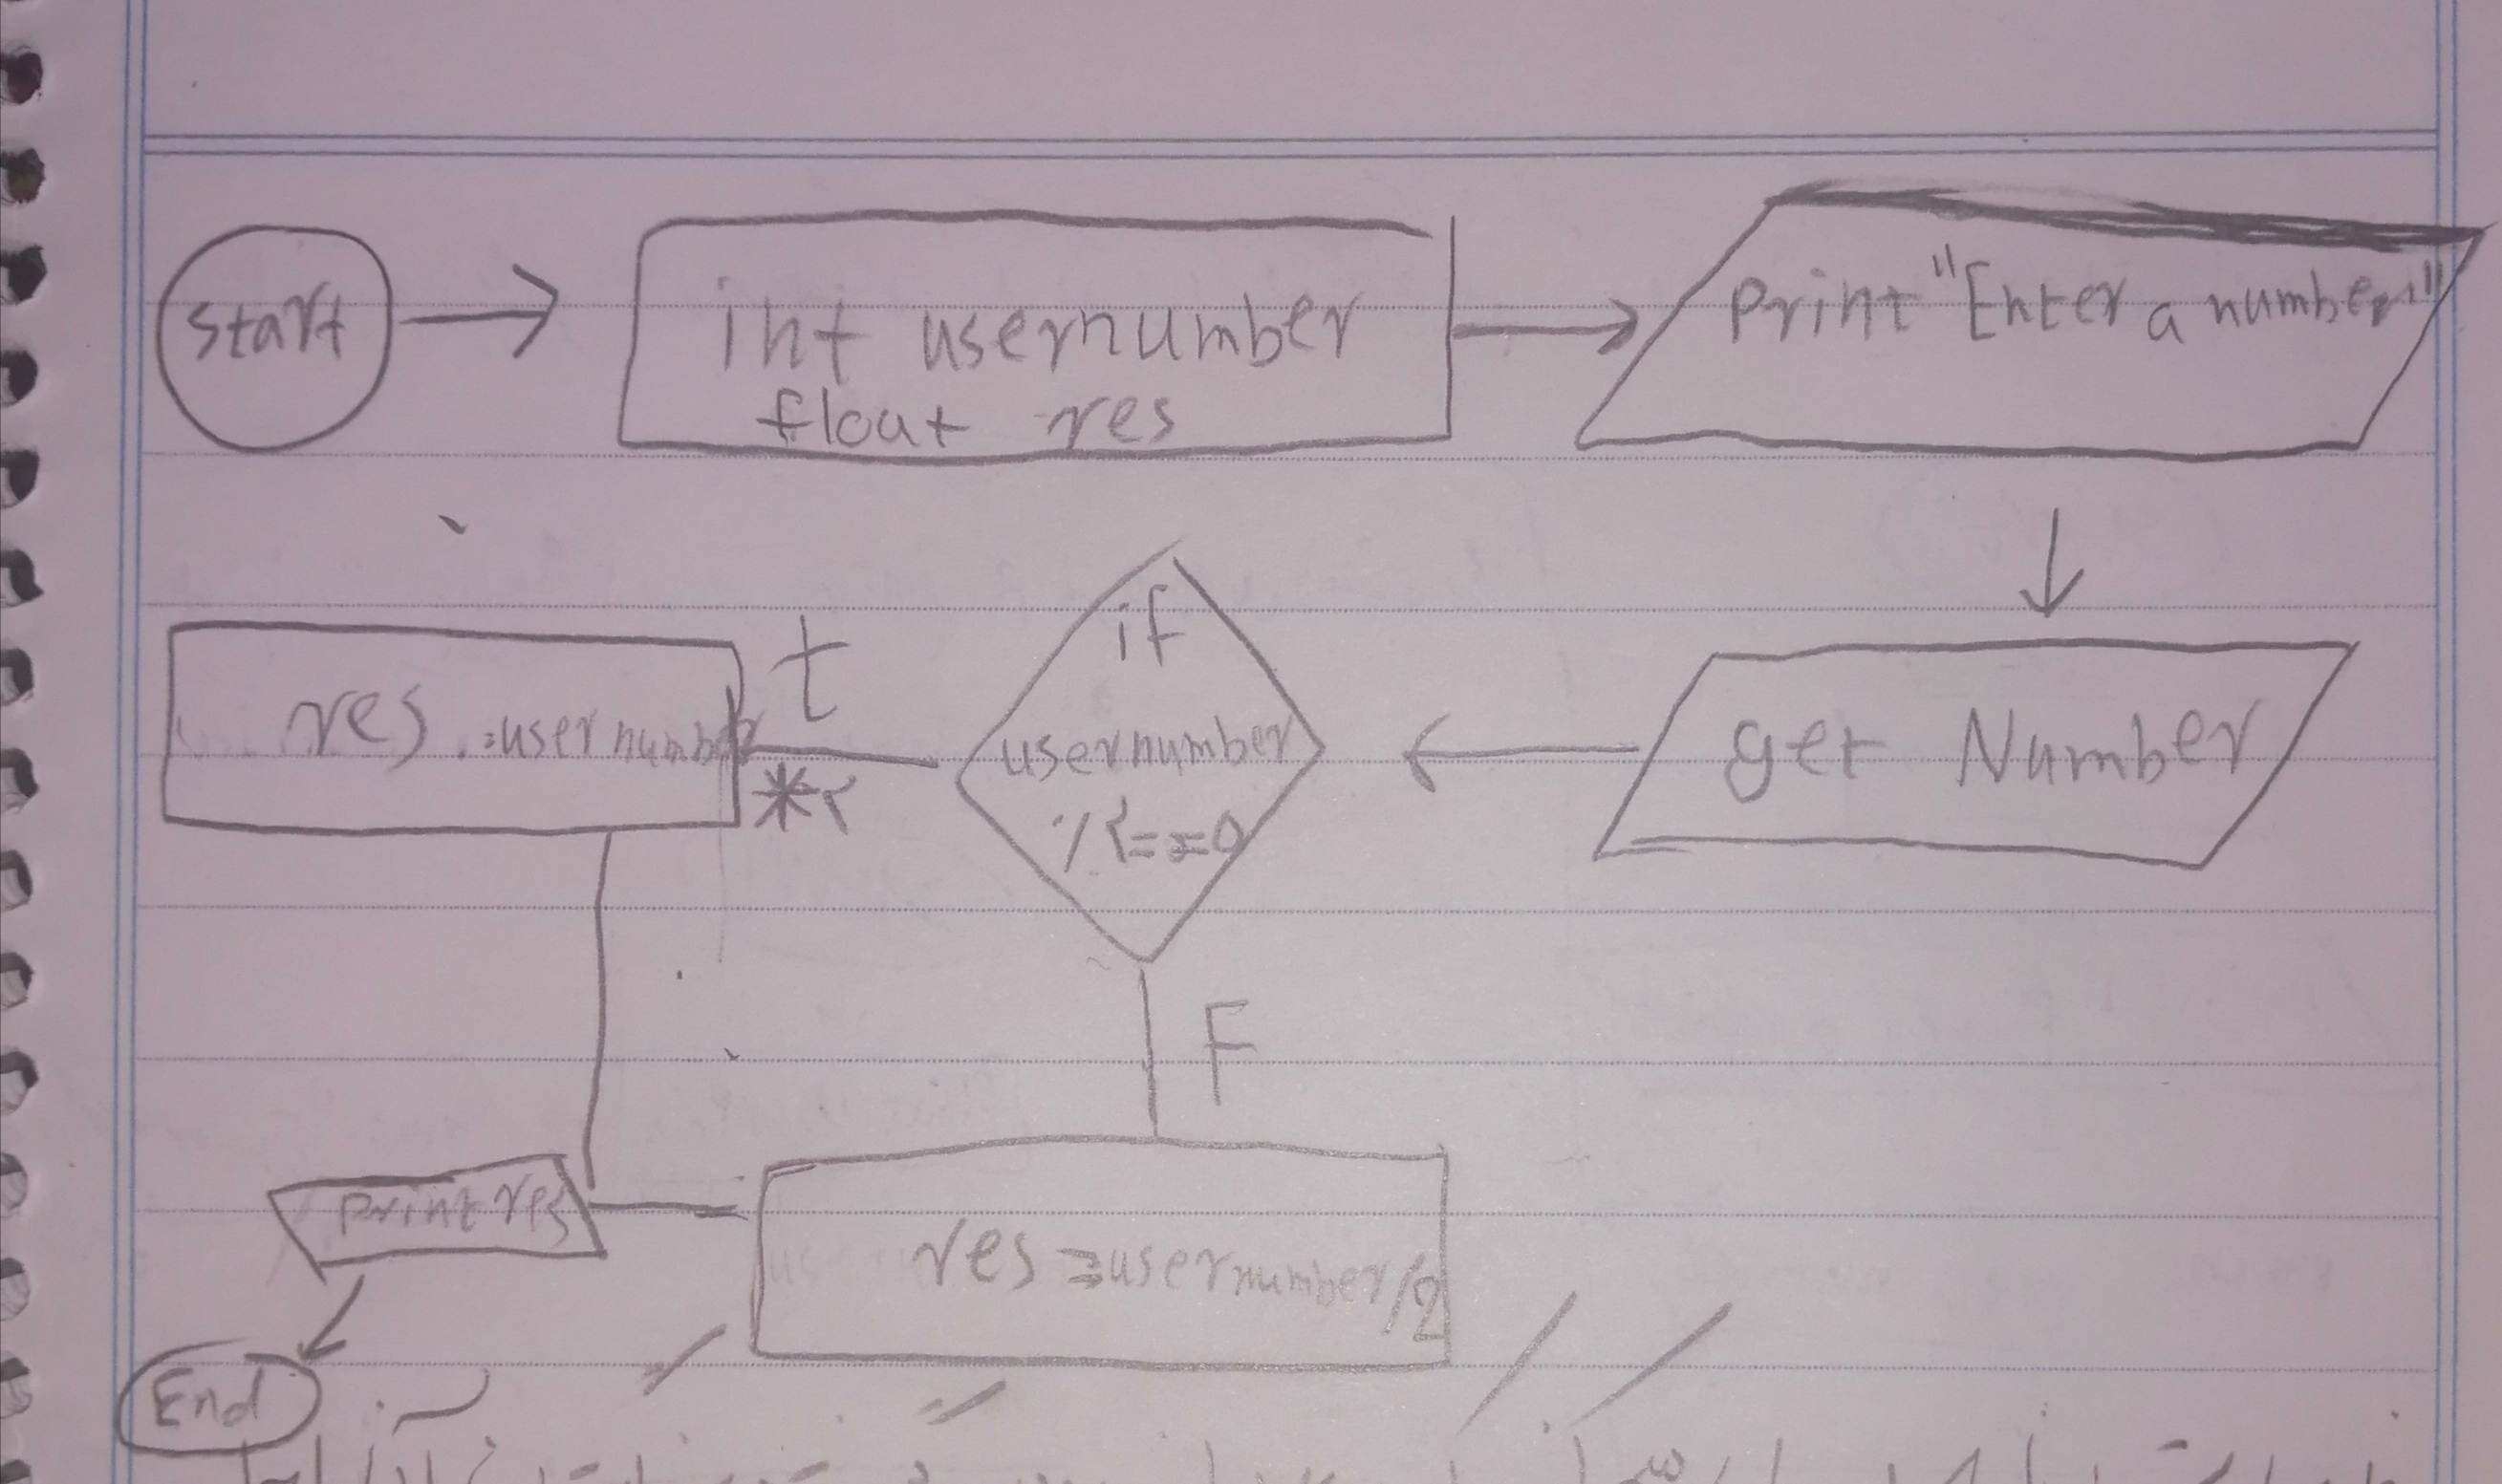 start
int usernumber
float res
Print "Enter a number"
get Number
if
usernumber
%۲==0
t
res =usernumber
*۲
F
res =usernumber/2
print res
End